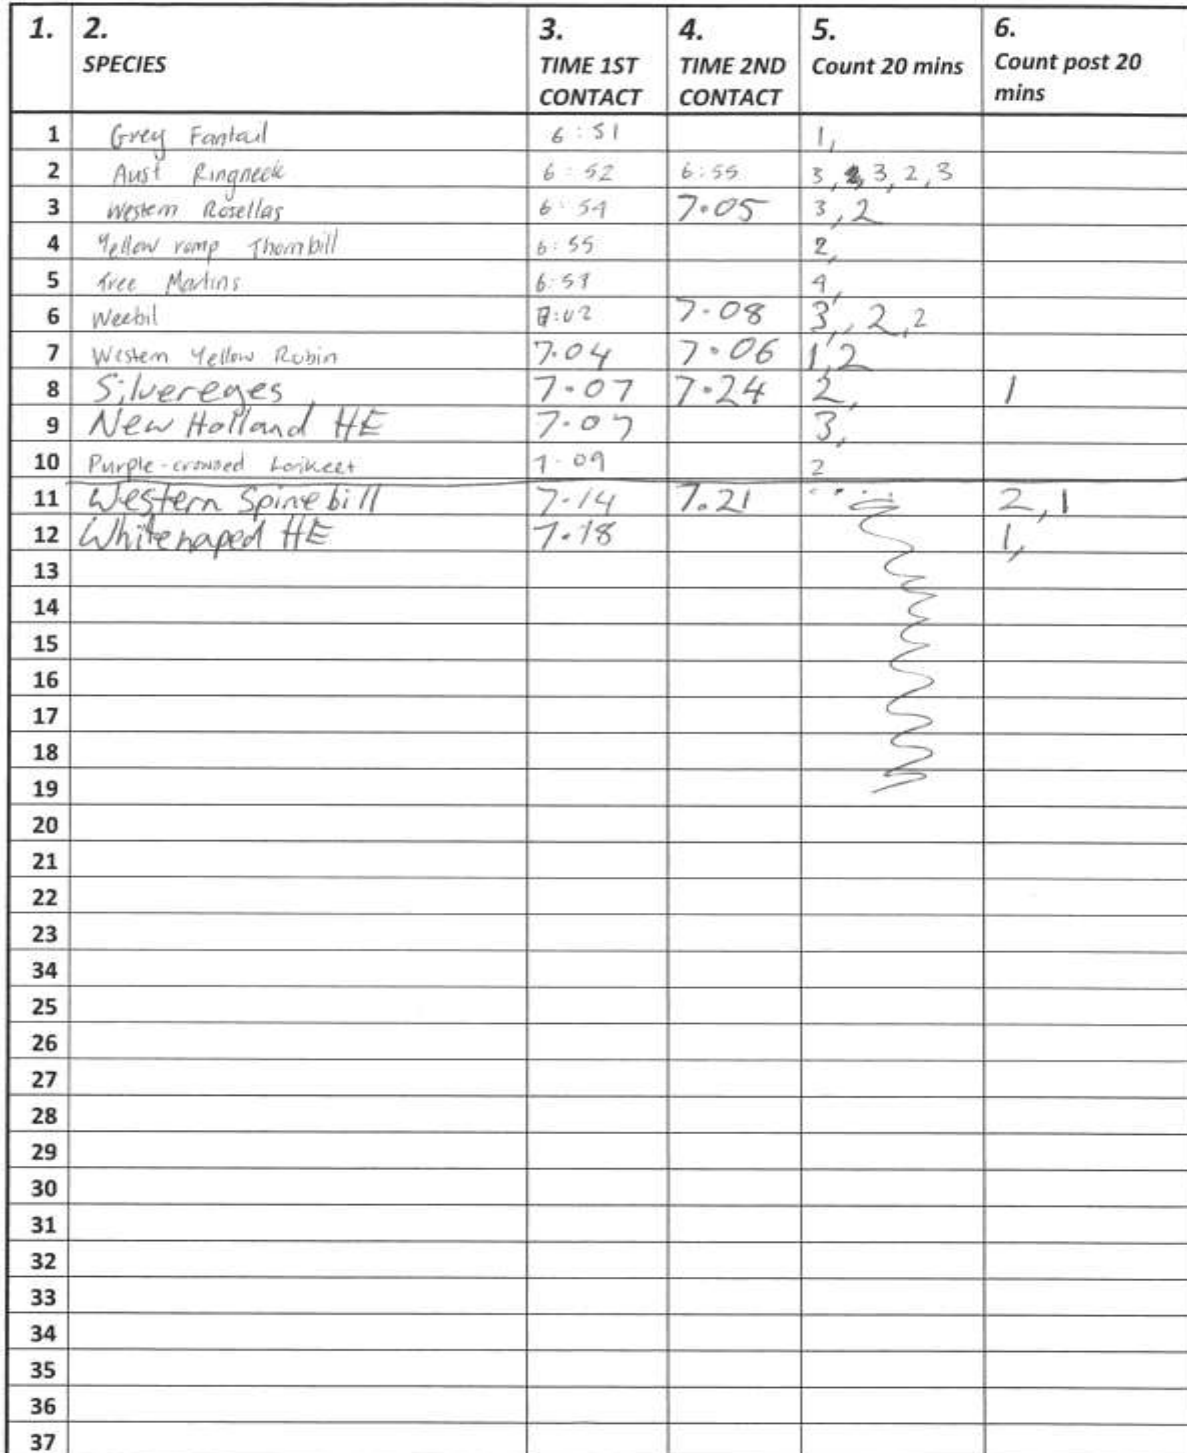 1. 2. 3. 4. 5. 6.
SPECIES TIME 1ST CONTACT TIME 2ND CONTACT Count 20 mins Count post 20 mins
1 Grey Fantail 6:51 1,
2 Aust Ringneck 6:52 6:55 3, 3, 2, 3
3 Western Rosellas 6:54 7.05 3, 2
4 Yellow romp Thornbill 6:55 2,
5 Tree Martins 4,
6 Weebil 7.08 3, 2, 2
7 Western Yellow Robin 7.04 7.06 1, 2
8 Silvereyes 7.07 7.24 2, 1
9 New Holland HE 7.07 3,
10 Purple-crowned Lorikeet 7.09 2
11 Western Spinebill 7.14 7.21 2, 1
12 Whitenaped HE 7.18 1,
13
14
15
16
17
18
19
20
21
22
23
34
25
26
27
28
29
30
31
32
33
34
35
36
37